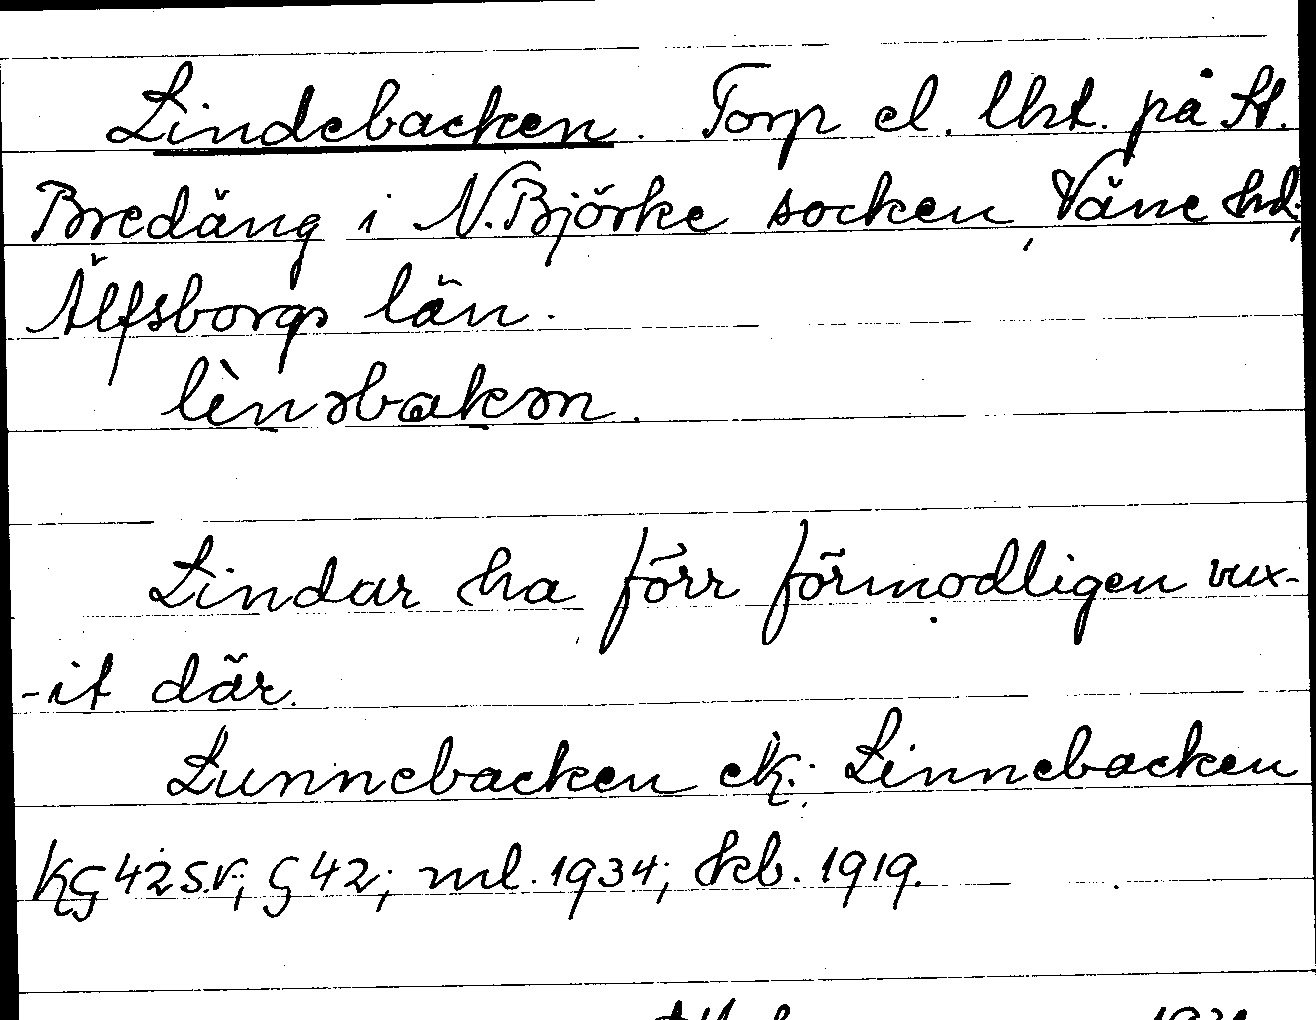 Lindebacken. Torp el. lht. på St.
Bredäng i N. Björke socken, Väne hd.,
Älfsborgs län.
lìnəbakən.
Lindar ha förr förmodligen vux-
-it där.
Lunnebacken ek.; Linnebacken